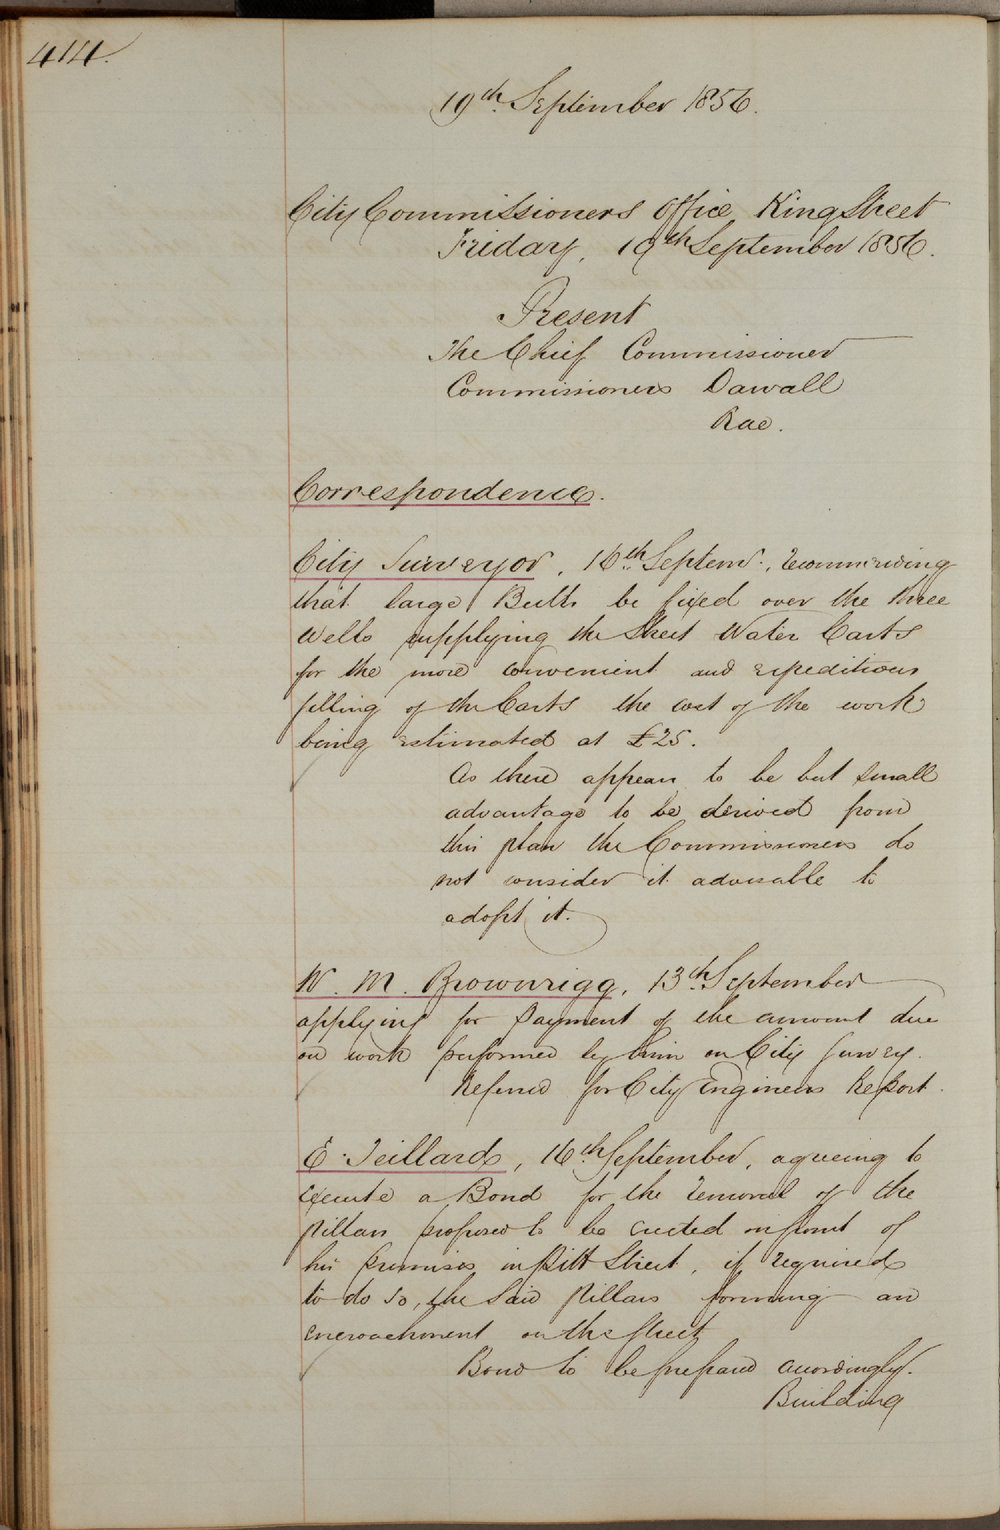 414.
19th September 1856.
City Commissioners Office King Street
Friday, 19th September 1856.
Present
The Chief Commissioner
Commissioners Dawall
Rae.
Correspondence.
City Surveyor, 16th Septemr., recommending
that large Butts be fixed over the three
Wells supplying the Street Water Carts
for the more convenient and expeditious
filling of the Carts the cost of the work
being estimated at £25.
As there appears to be but small
advantage to be derived from
this plan the Commissioners do
not consider it advisable to
adopt it.
W. M. Brownrigg, 13th September
applying for payment of the amount due
on work performed by him on City Survey.
Referred for City Engineers Report.
E. Teillard, 16th September, agreeing to
execute a Bond for the removal of the
pillars proposed to be erected in front of
his premises in Pitt Street, if required
to do so, the said pillars forming an
encroachment on the Street
Bond to be prepared accordingly.
Building